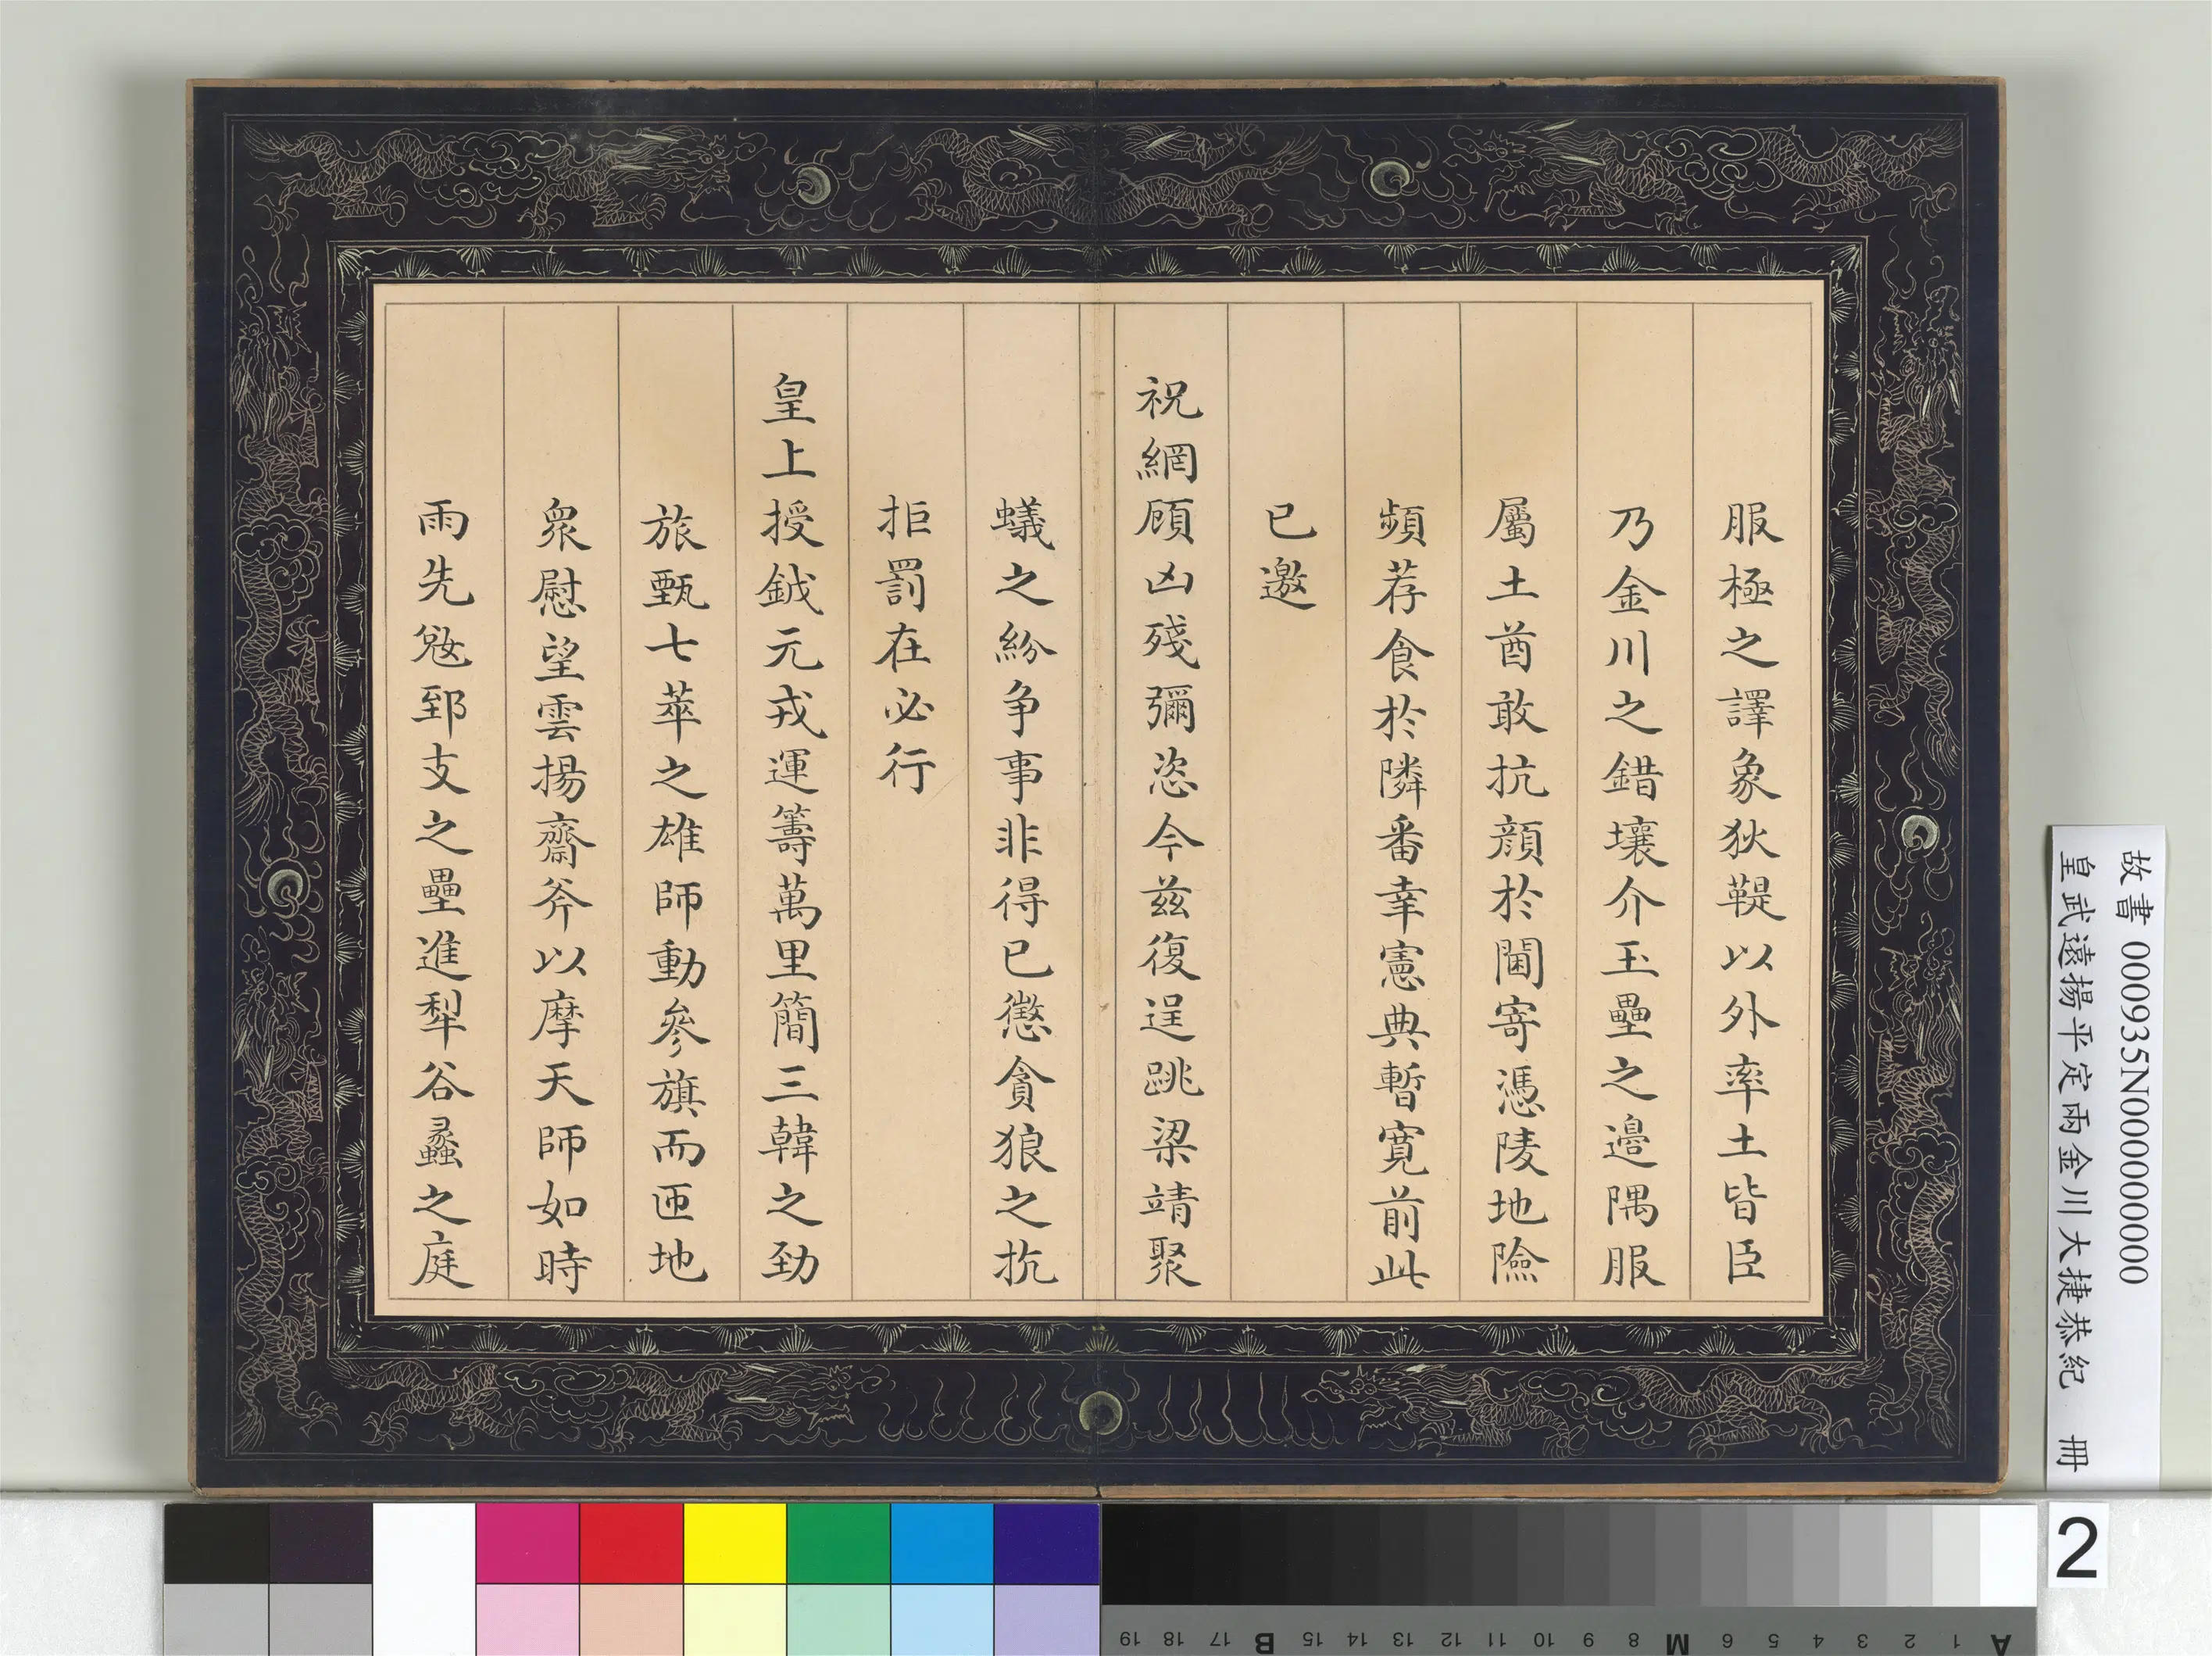 服極之譯象狄鞮以外率土皆臣
乃金川之錯壤介玉壘之邉隅服
屬土酋敢抗顔於閫寄憑陵地險
頻荐食於隣番幸憲典暫寛前此
已邀
祝網顧凶殘彌恣今兹復逞跳梁靖聚
蟻之紛争事非得已懲貪狼之抗
拒罰在必行
皇上授鉞元戎運籌萬里簡三韓之勁
旅甄七萃之雄師動參旗而匝地
衆慰望雲揚齋斧以摩天師如時
雨先殓郅支之壘進犁谷蠡之庭
故書 000935N000000000
皇武遠揚平定兩金川大捷恭紀 冊
2
19 18 17 B 15 14 13 12 11 10 9 8 M 6 5 4 3 2 1 A